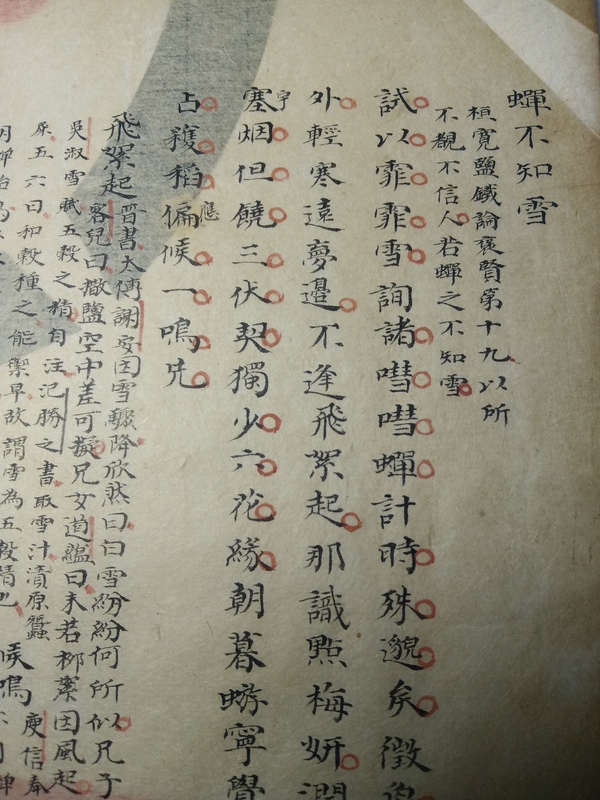 蟬不知雪
桓寬鹽鐵論褒賢第十九以所
不覩不信人若蟬之不知雪
試以霏霏雪詢諸嘒嘒蟬計時殊邈矣徵
外輕寒遠夢邊不逢飛絮起那識點梅妍澗
宇
塞烟但饒三伏契獨少六花緣朝暮蝣寧覺
應
占穫稻偏候一鳴先
飛絮起晉書太傅謝安因雪驟降欣然曰白雪紛紛何所似兄子
客兒曰撒鹽空中差可擬兄女道蘊曰未若柳絮因風起
吳淑雪賦五穀之精自注氾勝之書取雪汁漬原蠶
原五六日和穀種之能禦旱故謂雪為五穀精也
候鳴
庾信奉